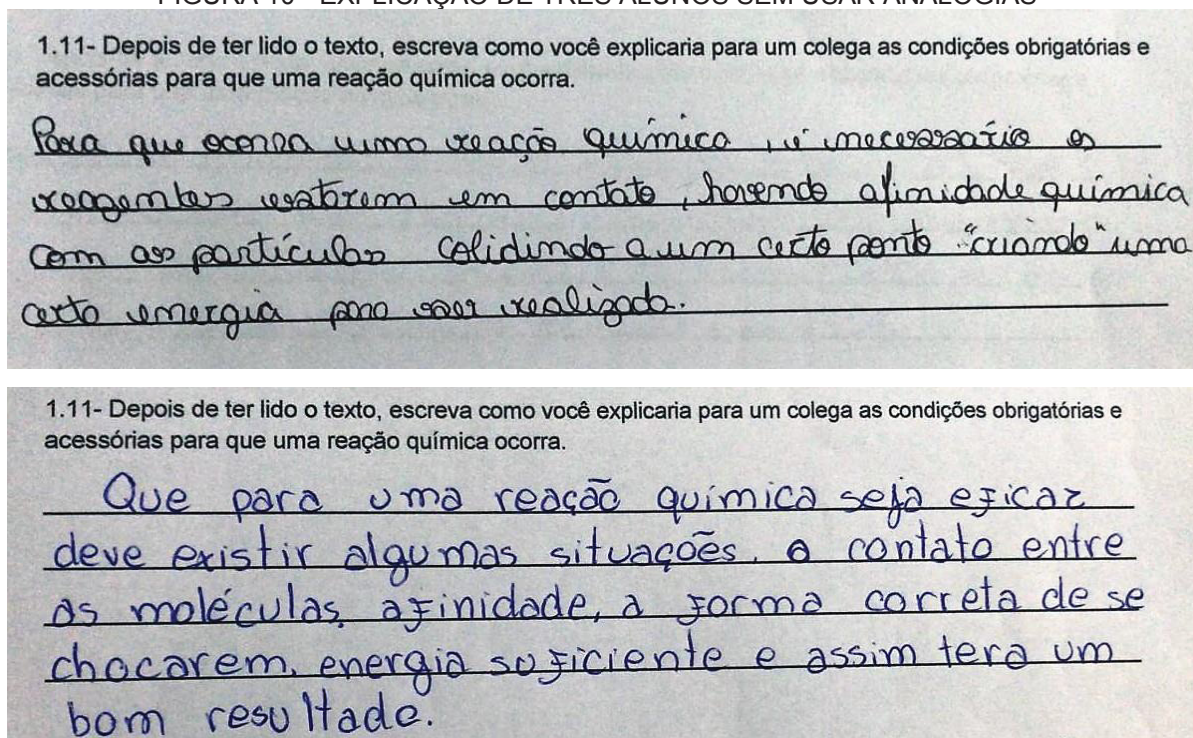 FIGURA 10 - EXPLICAÇÃO DE TRÊS ALUNOS SEM USAR ANALOGIAS
1.11- Depois de ter lido o texto, escreva como você explicaria para um colega as condições obrigatórias e
acessórias para que uma reação química ocorra.
Para que ocorra uma reação química, é necessario os
reagentes estarem em contato, havendo afinidade química
com as partículas colidindo a um certo ponto "criando" uma
certa energia para ser realizada.
1.11- Depois de ter lido o texto, escreva como você explicaria para um colega as condições obrigatórias e
acessórias para que uma reação química ocorra.
Que para uma reação química seja eficaz
deve existir algumas situações. o contato entre
as moléculas, afinidade, a forma correta de se
chocarem, energia suficiente e assim tera um
bom resultado.